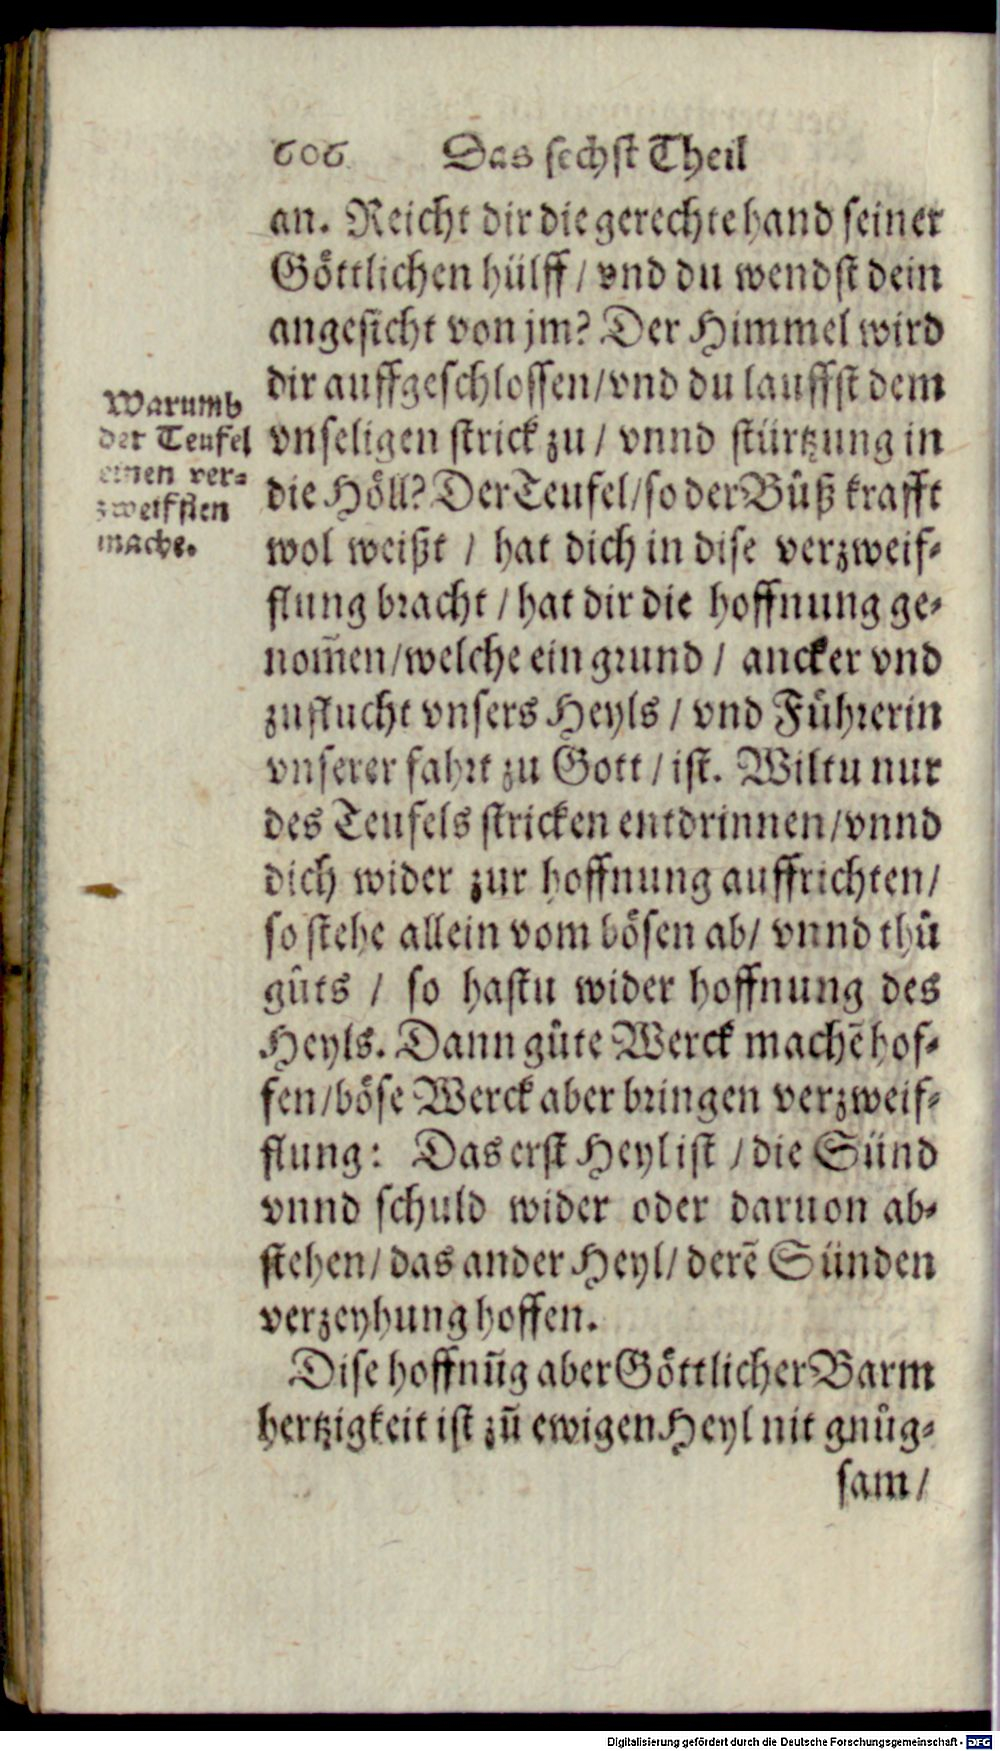 606 Das sechst Theil
an. Reicht dir die gerechte hand seiner
Göttlichen hülff / vnd du wendst dein
angesicht von jm? Der Himmel wird
dir auffgeschlossen / vnd du lauffst dem
vnseligen strick zu / vnnd stürtzung in
die Höll? Der Teufel / so der Bůß krafft
wol weißt / hat dich in dise verzweif-
flung bracht / hat dir die hoffnung ge-
nom̃en / welche ein grund / ancker vnd
zuflucht vnsers Heyls / vnd Führerin
vnserer fahrt zu Gott / ist. Wiltu nur
des Teufels stricken entdrinnen / vnnd
dich wider zur hoffnung auffrichten /
so stehe allein vom bösen ab / vnnd thů
gůts / so hastu wider hoffnung des
Heyls. Dann gůte Werck machẽ hof-
fen / böse Werck aber bringen verzweif-
flung: Das erst Heyl ist / die Sünd
vnnd schuld wider oder daruon ab-
stehen / das ander Heyl / derẽ Sünden
verzeyhung hoffen.
Dise hoffnũg aber Göttlicher Barm
hertzigkeit ist zũ ewigen Heyl nit gnůg-
sam /
Warumb
der Teufel
einen ver-
zweifflen
mache.
Digitalisierung gefördert durch die Deutsche Forschungsgemeinschaft - DFG